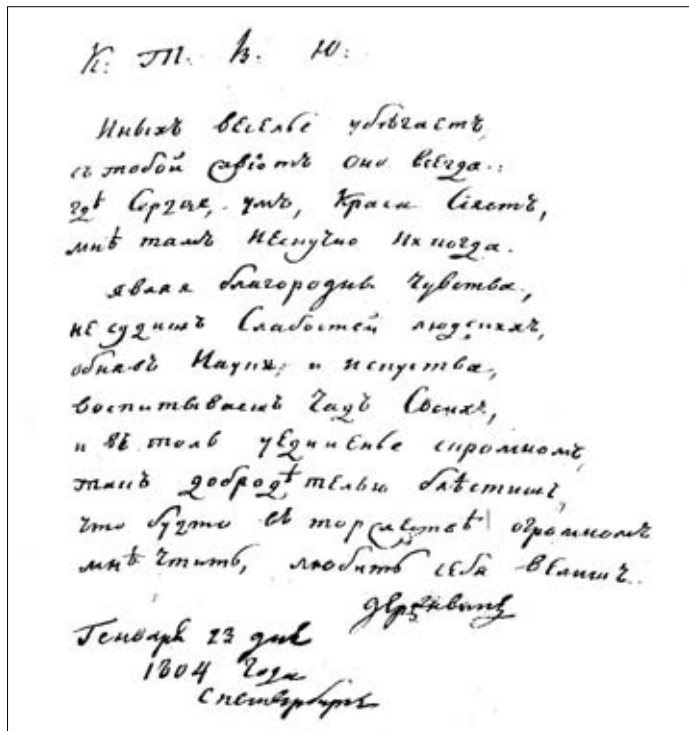 К: Т. В. Ю:
Иныхъ веселье убѣгаетъ,
съ тобой оно всегда.
гдѣ Сердце, умъ, Краса Сіяетъ,
мнѣ тамъ нескучно никогда.
являя благородны Чувства,
не судишъ Слабостей людскихъ,
обнявъ Науки, и искуства,
воспитываешь Чадъ Своихъ,
и въ толь уединенье скромномъ,
такъ добродѣтелью блѣстишь,
что будто въ торжествѣ огромномъ
мнѣ Чтить, любить себя велишъ.
Державинъ
Генваря 23 дня
1804 года
С петербургъ